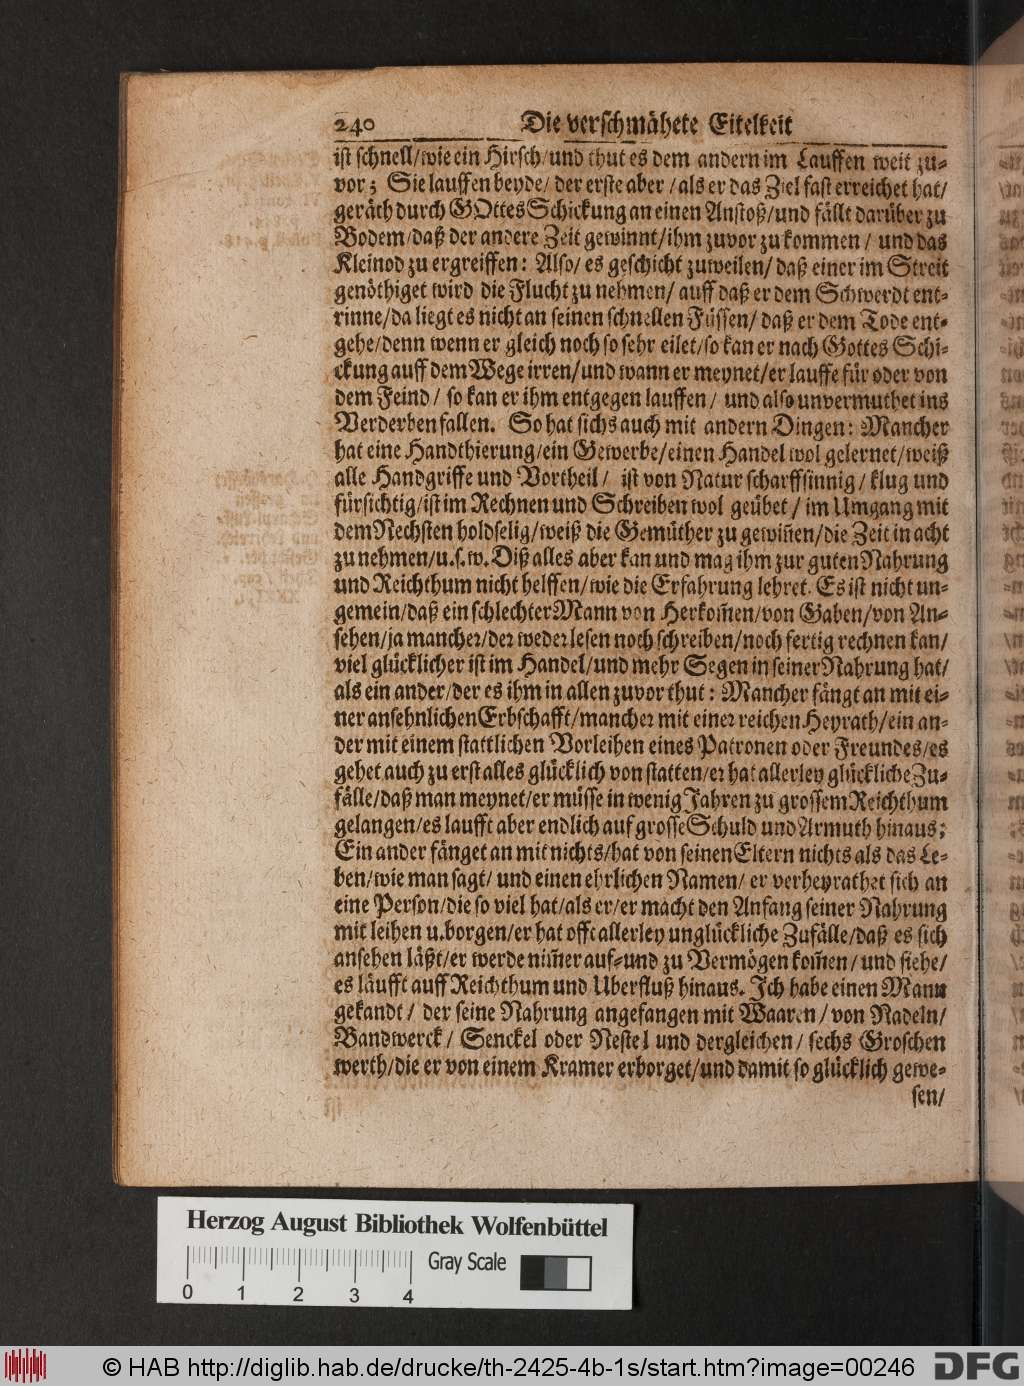 240 Die verschmähete Eitelkeit
ist schnell/wie ein Hirsch/und thut es dem andern im Lauffen weit zu-
vor; Sie lauffen beyde/ der erste aber /als er das Ziel fast erreichet hat/
geräth durch GOttes Schickung an einen Anstoß/und fällt darüber zu
Bodem/daß der andere Zeit gewinnt/ihm zuvor zu kommen/ und das
Kleinod zu ergreiffen: Also/ es geschicht zuweilen/ daß einer im Streit
genöthiget wird die Flucht zu nehmen/ auff daß er dem Schwerdt ent-
rinne/da liegt es nicht an seinen schnellen Füssen/ daß er dem Tode ent-
gehe/denn wenn er gleich noch so sehr eilet/so kan er nach Gottes Schi-
ckung auff dem Wege irren/und wann er meynet/er lauffe für oder von
dem Feind/ so kan er ihm entgegen lauffen/ und also unvermuthet ins
Verderben fallen. So hat sichs auch mit andern Dingen: Mancher
hat eine Handthierung/ein Gewerbe/einen Handel wol gelernet/weiß
alle Handgriffe und Vortheil/ ist von Natur scharffsinnig/ klug und
fürsichtig/ist im Rechnen und Schreiben wol geübet/ im Umgang mit
dem Nechsten holdselig/weiß die Gemüther zu gewiñen/die Zeit in acht
zu nehmen/u.s.w. Diß alles aber kan und mag ihm zur guten Nahrung
und Reichthum nicht helffen/wie die Erfahrung lehret. Es ist nicht un-
gemein/daß ein schlechter Mann von Herkom̃en/von Gaben/von An-
sehen/ja mancher/der weder lesen noch schreiben/noch fertig rechnen kan/
viel glücklicher ist im Handel/und mehr Segen in seiner Nahrung hat/
als ein ander/der es ihm in allen zuvor thut: Mancher fängt an mit ei-
ner ansehnlichen Erbschafft/mancher mit einer reichen Heyrath/ein an-
der mit einem stattlichen Vorleihen eines Patronen oder Freundes/es
gehet auch zu erst alles glücklich von statten/er hat allerley glückliche Zu-
fälle/daß man meynet/er müsse in wenig Jahren zu grossem Reichthum
gelangen/es laufft aber endlich auf grosse Schuld und Armuth hinaus;
Ein ander fänget an mit nichts/hat von seinen Eltern nichts als das Le-
ben/wie man sagt/ und einen ehrlichen Namen/ er verheyrathet sich an
eine Person/die so viel hat/als er/er macht den Anfang seiner Nahrung
mit leihen u.borgen/er hat offt allerley unglückliche Zufälle/daß es sich
ansehen läßt/er werde nim̃er auf-und zu Vermögen kom̃en/ und siehe/
es läufft auff Reichthum und Uberfluß hinaus. Ich habe einen Mann
gekandt/ der seine Nahrung angefangen mit Waaren/ von Nadeln/
Bandwerck/ Senckel oder Nestel und dergleichen/ sechs Groschen
werth/die er von einem Kramer erborget/und damit so glücklich gewe-
sen/
Herzog August Bibliothek Wolfenbüttel
Gray Scale
0 1 2 3 4
© HAB http://diglib.hab.de/drucke/th-2425-4b-1s/start.htm?image=00246
DFG